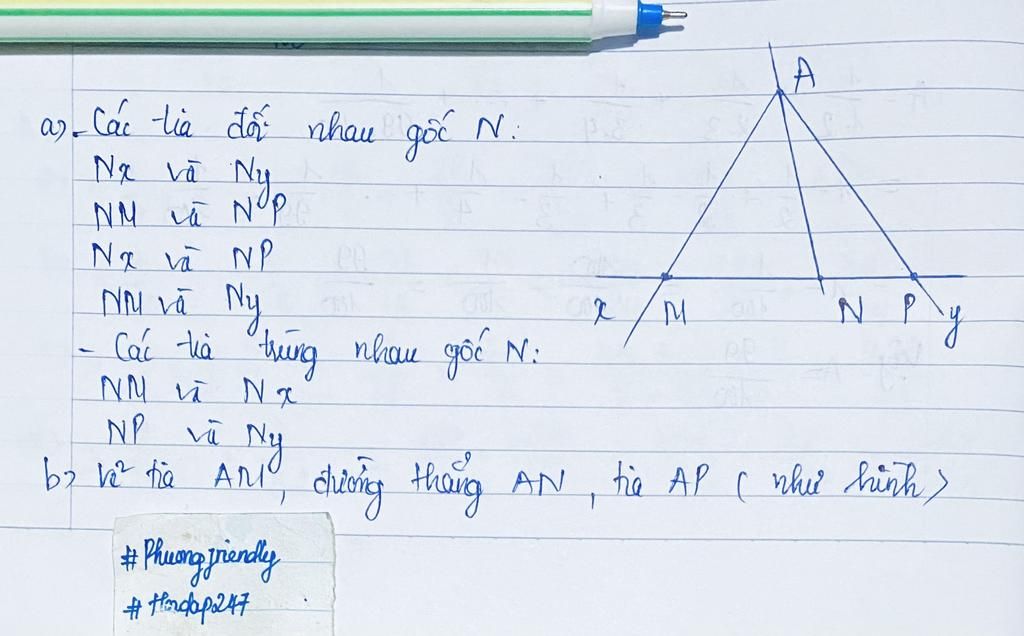 a) - Các tia đối nhau gốc N:
Nx và Ny
NM và NP
Nx và NP
NM và Ny
- Các tia trùng nhau gốc N:
NM và Nx
NP và Ny
b) Vẽ tia AM, đường thẳng AN, tia AP (như hình)
A
x M N P y
#Phuongfriendly
#Hoidap247